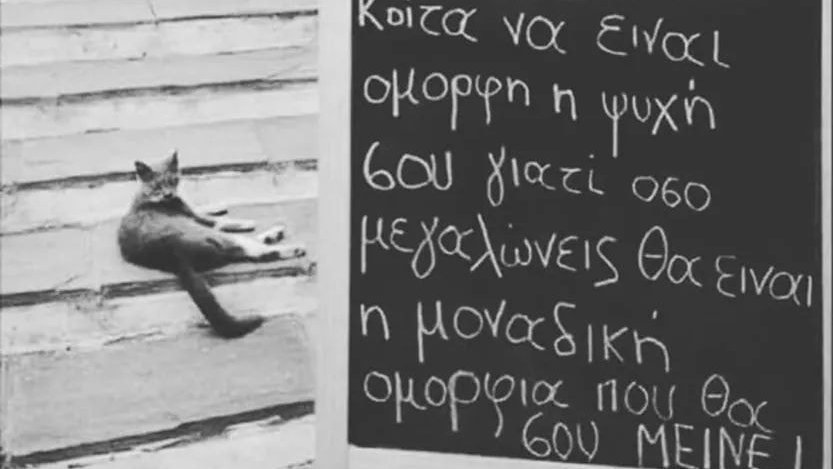 Κοιτα να ειναι
ομορφη η ψυχή
σου γιατί οσο
μεγαλώνεις θα ειναι
η μοναδική
ομορφια που θα
σου ΜΕΙΝΕΙ